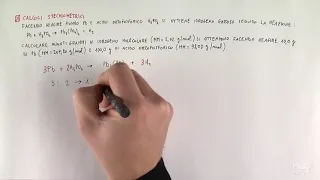 CALCOLI STECHIOMETRICI
FACENDO REAGIRE PIOMBO Pb E ACIDO ORTOFOSFORICO H₃PO₄ SI OTTIENE IDROGENO GASSOSO SECONDO LA REAZIONE:
Pb + H₃PO₄ → Pb₃(PO₄)₂ + H₂
CALCOLARE QUANTI GRAMMI DI IDROGENO MOLECOLARE (MM = 2,02 g/mol) SI OTTENGONO FACENDO REAGIRE
DI Pb (MM = 207,20 g/mol) E DI ACIDO ORTOFOSFORICO (MM = g/mol)
3Pb + 2H₃PO₄ → + 3H₂
3 : 2 → 1